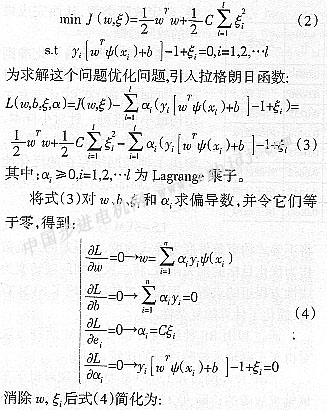 min J (w,ξ)=\frac{1}{2}w^T w+\frac{1}{2}C\sum_{i=1}^{l}ξ_i^2 (2)
s.t y_i[w^Tψ(x_i)+b]-1+ξ_i=0,i=1,2,⋯l
为求解这个问题优化问题,引入拉格朗日函数:
L(w,b,ξ,α)=J(w,ξ)-\sum_{i=1}^{l}α_i(y_i[w^Tψ(x_i)+b]-1+ξ_i)=
\frac{1}{2}w^T w+\frac{1}{2}C\sum_{i=1}^{l}ξ_i^2-\sum_{i=1}^{l}α_i(y_i[w^Tψ(x_i)+b]-1-ξ_i (3)
其中:α_i≥0,i=1,2,⋯l 为 Lagrange 乘子。
将式(3)对 w、b、ξ_i 和 α_i 求偏导数,并令它们等
于零,得到:
\frac{∂L}{∂w}=0→w=\sum_{i=1}^{n}α_i y_iψ(x_i)
\frac{∂L}{∂b}=0→\sum_{i=1}^{n}α_i y_i=0
\frac{∂L}{∂e_i}=0→α_i=Cξ_i
(4)
\frac{∂L}{∂α_i}=0→y_i[w^Tψ(x_i)+b]-1+ξ_i=0
;
消除 w, ξ_i后式(4)简化为: